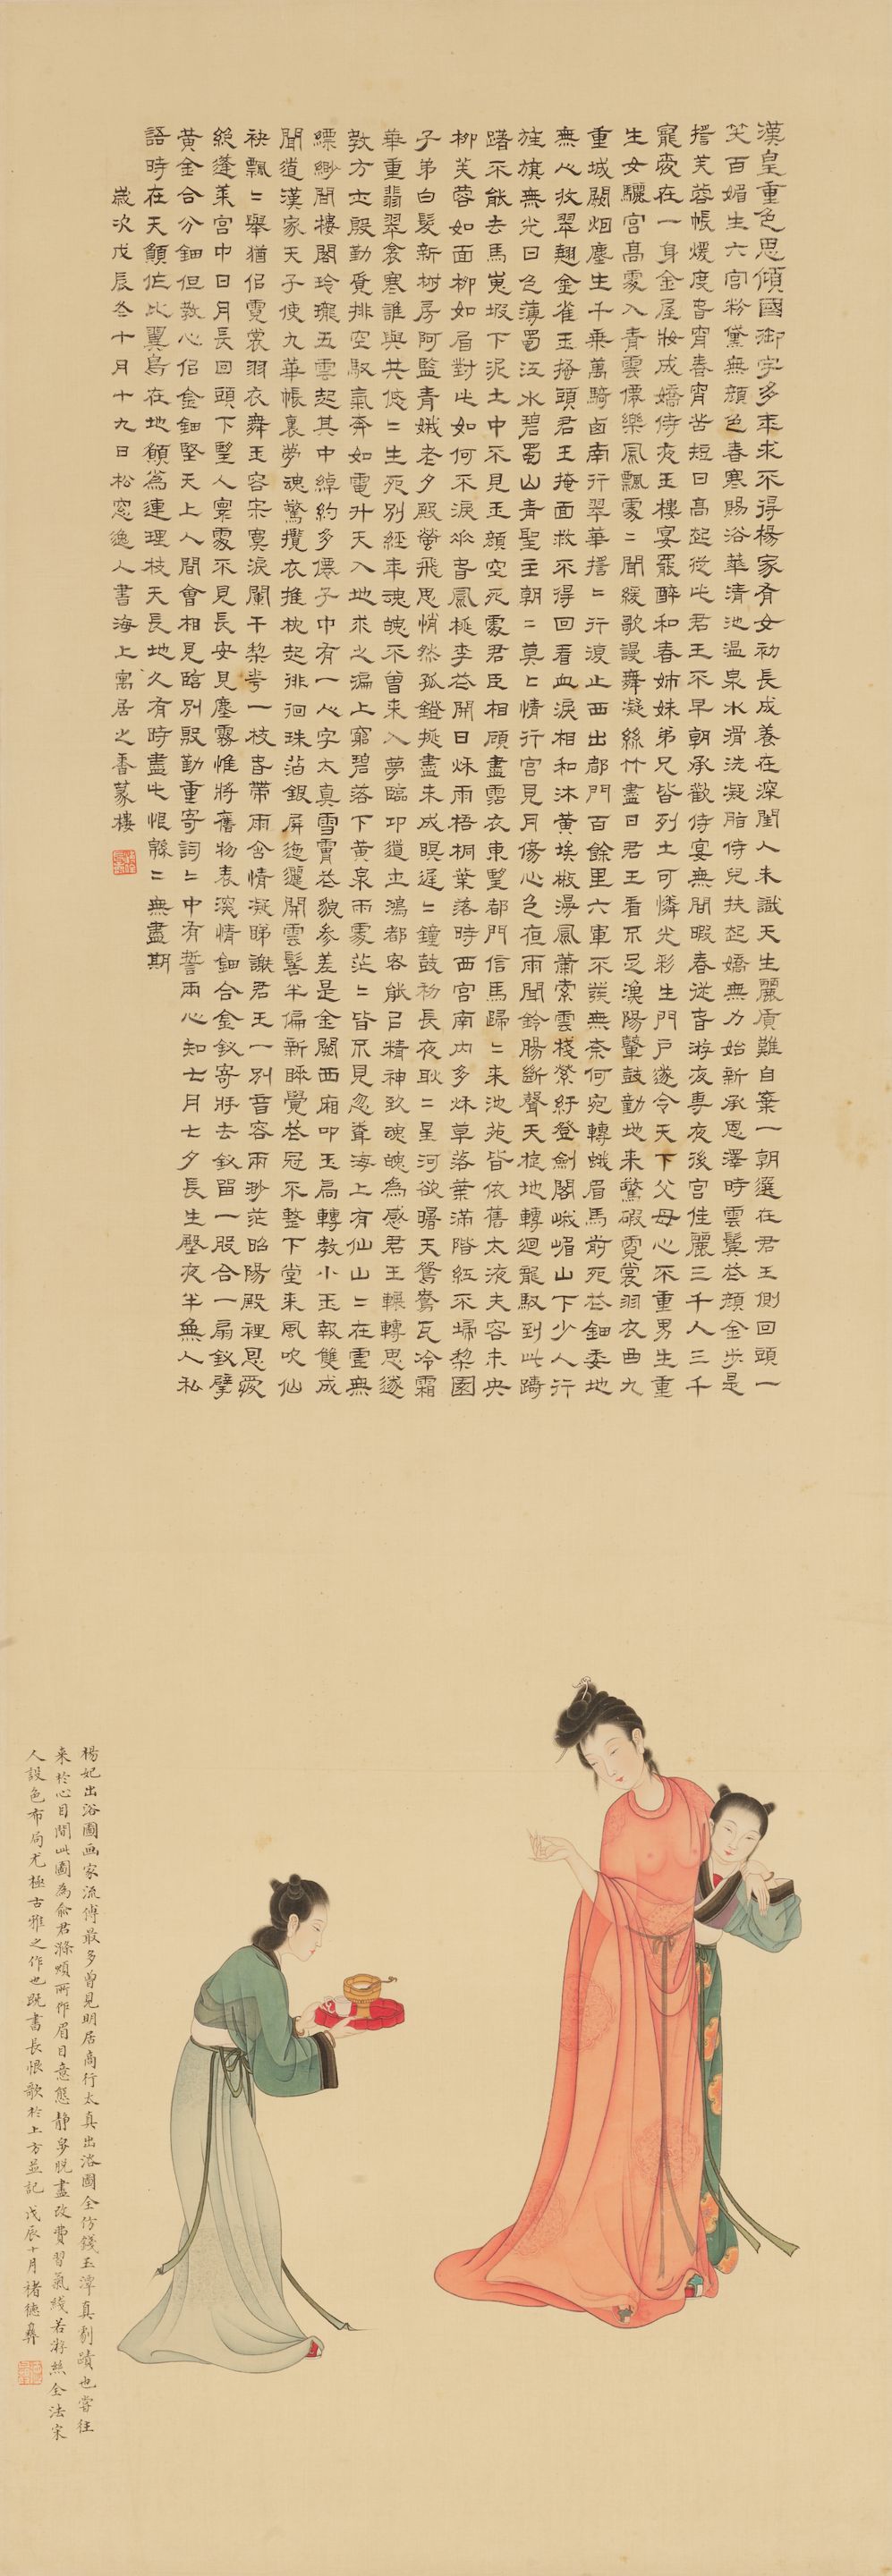 漢皇重色思傾國御宇多年求不得楊家有女初長成養在深閨人未識天生麗質難自棄一朝選在君王側回頭一
笑百媚生六宮粉黛無顏色春寒賜浴華清池溫泉水滑洗凝脂侍兒扶起嬌無力始新承恩澤時雲鬢花顏金步是
搖芙蓉帳煖度春宵春宵苦短日高起從此君王不早朝承歡侍宴無閒暇春從春游夜專夜後宮佳麗三千人三千
寵愛在一身金屋妝成嬌侍夜玉樓宴罷醉和春姊妹弟兄皆列土可憐光彩生門戶遂令天下父母心不重男生重
生女驪宮高處入青雲僊樂風飄處〻聞緩歌謾舞凝絲竹盡日君王看不足漁陽鼙鼓動地來驚破霓裳羽衣曲九
重城闕烟塵生千乘萬騎西南行翠華搖〻行復止西出都門百餘里六軍不發無奈何宛轉蛾眉馬前死花鈿委地
無人收翠翹金雀玉搔頭君王掩面救不得回看血淚相和沐黃埃散漫風蕭索雲棧縈紆登劍閣峨嵋山下少人行
旌旗無光日色薄蜀江水碧蜀山青聖主朝〻莫〻情行宮見月傷心色夜雨聞鈴腸斷聲天旋地轉迴龍馭到此躊
躇不能去馬嵬坡下泥土中不見玉顏空死處君臣相顧盡霑衣東望都門信馬歸〻來池苑皆依舊太液夫容未央
柳芙蓉如面柳如眉對此如何不淚垂春風桃李花開日秋雨梧桐葉落時西宮南內多秋草落葉滿階紅不埽梨園
子弟白髮新椒房阿監青娥老夕殿螢飛思悄然孤鐙挑盡未成瞑遲〻鐘鼓初長夜耿〻星河欲曙天鴛鴦瓦冷霜
華重翡翠衾寒誰與共悠〻生死別經年魂魄不曾来入夢臨邛道士鴻都客能以精神致魂魄為感君王輾轉思遂
教方士殷勤覓排空馭氣奔如電升天入地求之徧上窮碧落下黃泉兩處茫〻皆不見忽聞海上有仙山〻在虛無
縹緲閒樓閣玲瓏五雲起其中綽約多僊子中有一人字太真雪膚花貌參差是金闕西廂叩玉扃轉教小玉報雙成
聞道漢家天子使九華帳裏夢魂驚攬衣推枕起徘徊珠箔銀屏迤邐開雲髻半偏新睡覺花冠不整下堂来風吹仙
袂飄〻舉猶佀霓裳羽衣舞玉容寂寞淚闌干梨花一枝春帶雨含情凝睇謝君王一別音容兩渺茫昭陽殿裡恩愛
絕蓬萊宮中日月長回頭下望人寰處不見長安見塵霧惟將舊物表深情鈿合金釵寄將去釵留一股合一扇釵擘
黃金合分鈿但教心佀金鈿堅天上人閒會相見臨別殷勤重寄詞〻中有誓兩心知七月七夕長生殿夜半無人私
語時在天願作比翼鳥在地願為連理枝天長地久有時盡此恨緜〻無盡期
歲次戊辰冬十月十九日松窓逸人書海上寓居之香篆樓
楊妃出浴圖画家流傳最多曾見明居商行太真出浴圖全仿錢玉潭真剬蹟也嘗往
來於心目間此圖為俞君滌煩所作眉目意態靜穆脫盡改費習氣綫若游絲全法宋
人設色布局尤極古雅之作也既書長恨歌於上方並記 戊辰十月褚德彝